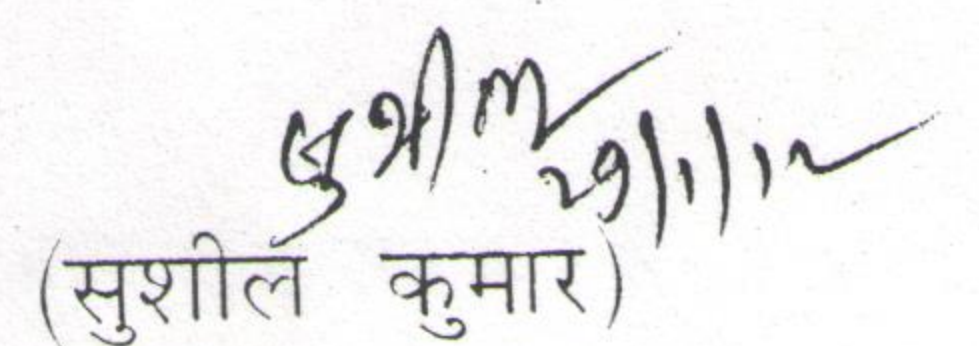 सुशील
29/1/12
(सुशील कुमार)